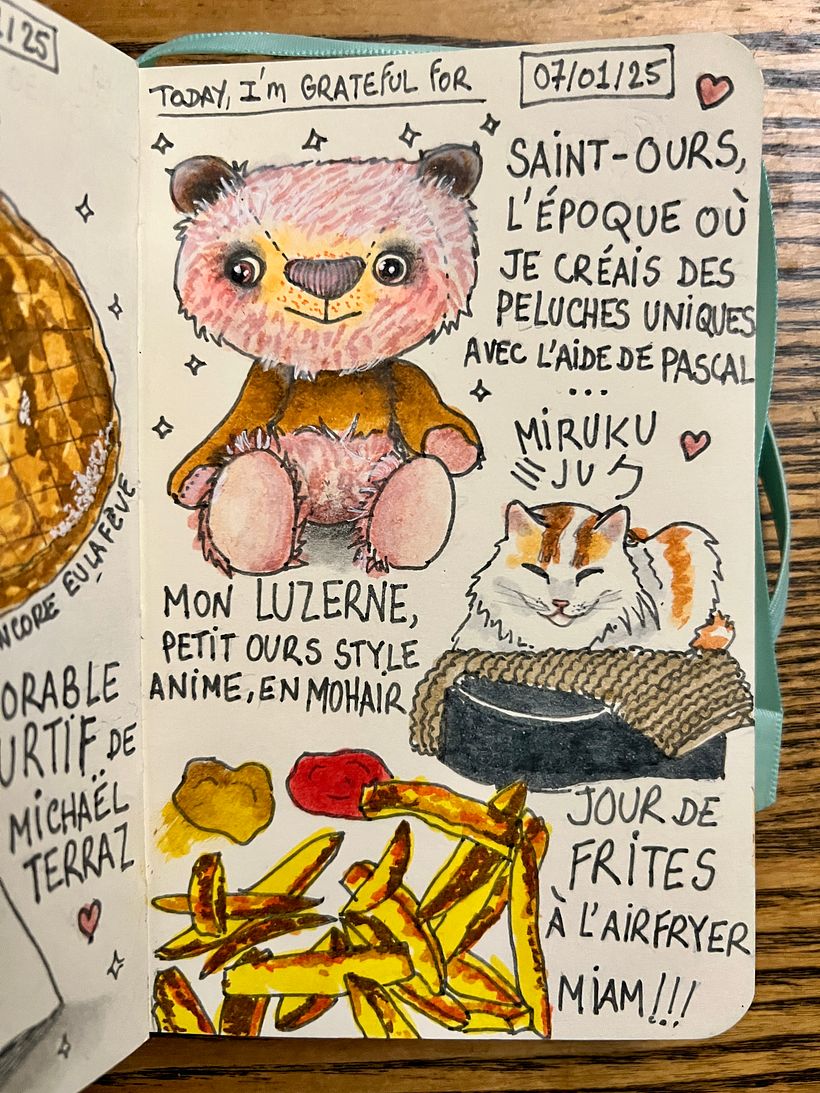 1/25
NCORE EU LA FÈVE
ORABLE
URTIF DE
MICHAËL
TERRAZ
TODAY, I'm GRATEFUL FOR
07/01/25
SAINT-OURS,
L'ÉPOQUE OÙ
JE CRÉAIS DES
PELUCHES UNIQUES
AVEC L'AIDE DE PASCAL
...
MIRUKU
ミルク
MON LUZERNE,
PETIT OURS STYLE
ANIME, EN MOHAIR
JOUR DE
FRITES
À L'AIRFRYER
MIAM!!!